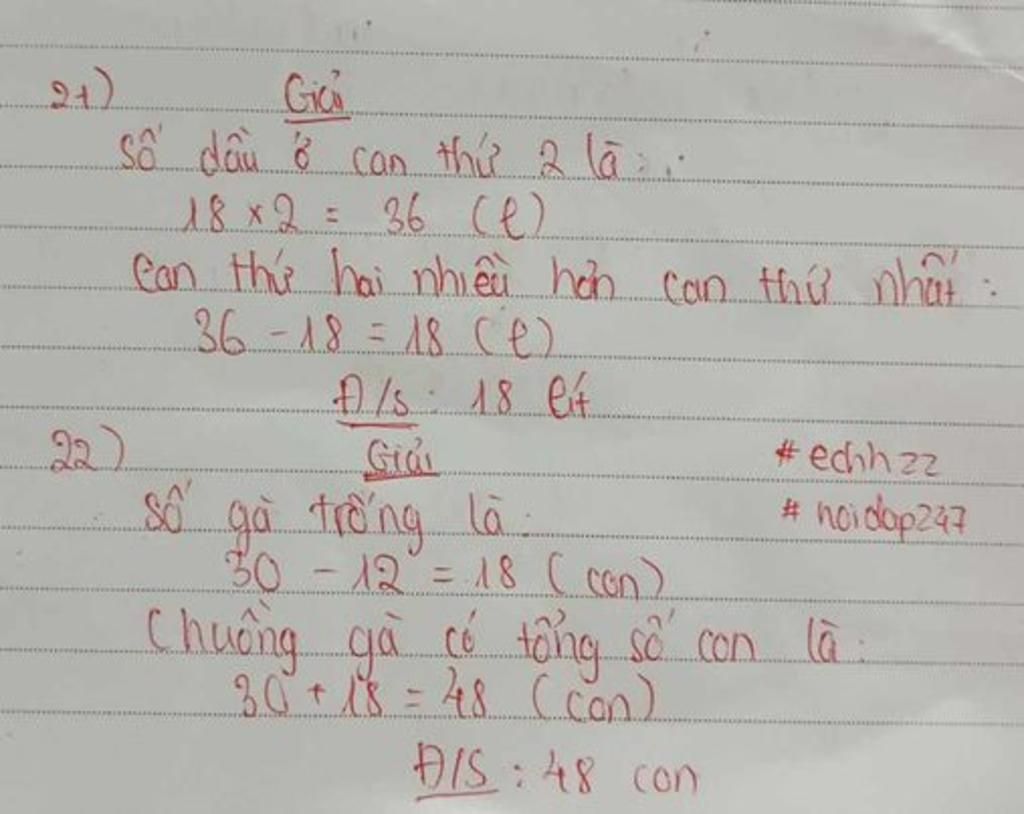 21)
Giải
Số dầu ở can thứ 2 là:
18 × 2 = 36 (l)
Can thứ hai nhiều hơn can thứ nhất:
36 - 18 = 18 (l)
Đ/S: 18 lít
22)
Giải
#echh22
Số gà trống là:
#hoidap247
30 - 12 = 18 (con)
Chuồng gà có tổng số con là:
30 + 18 = 48 (con)
Đ/S: 48 con